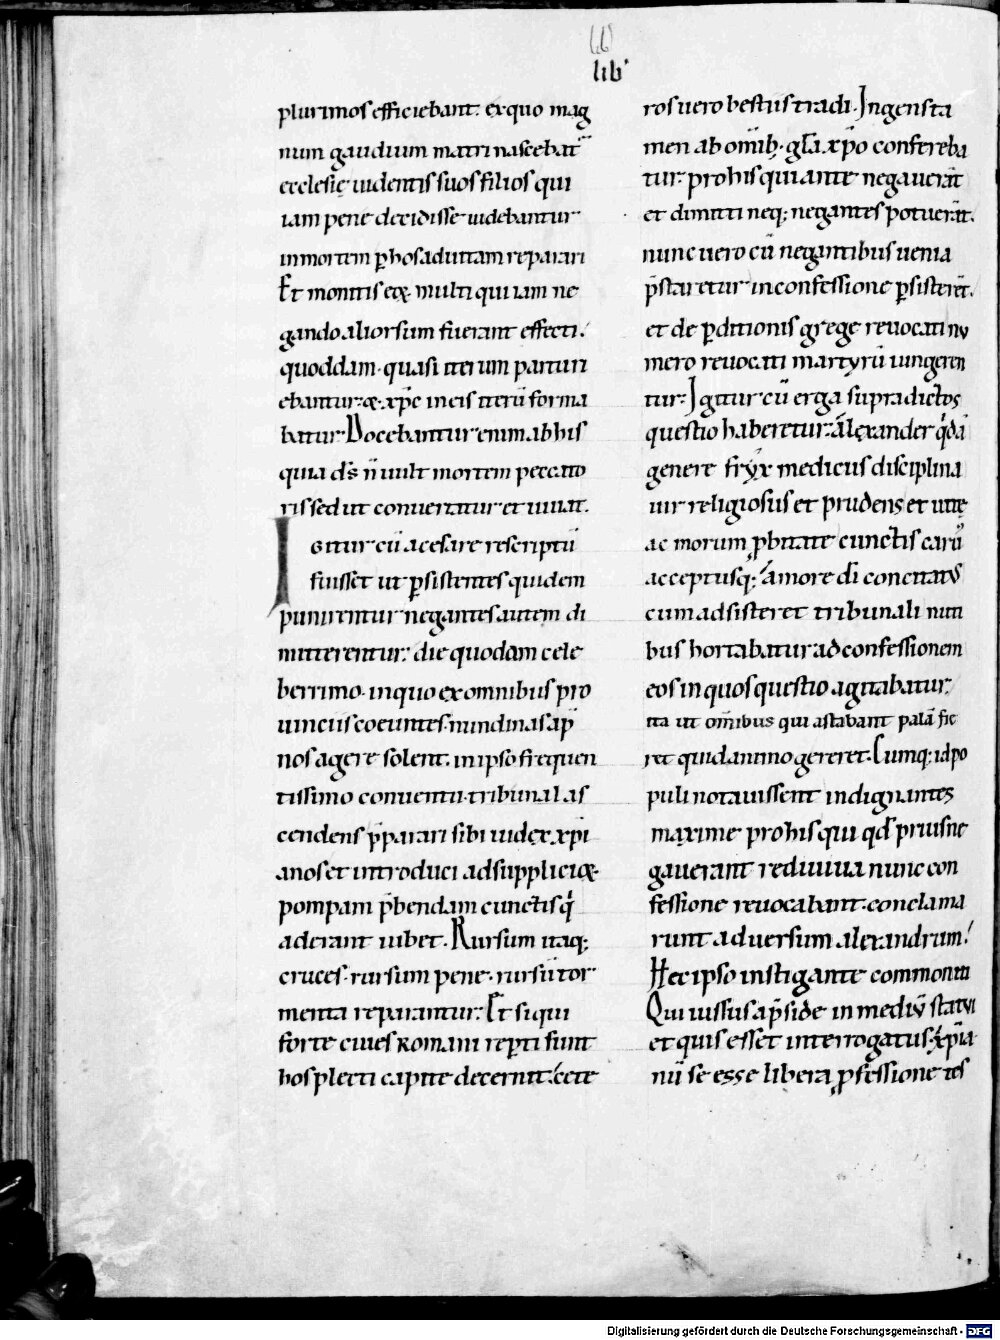 lib'
plurimos efficiebant. ex quo mag
num gaudium matri nascebat᷑
ecclesię uidentis suos filios qui
iam pene decidisse uidebantur
in mortem ꝑ hos ad uitam reparari
Et monitis eoꝝ multi qui iam ne
gando aliorsum fuerant effecti.
quoddam quasi iterum parturi
ebantur. & xp̄c in eis iterū forma
batur. Docebantur enim ab his
quia ds̄ n̄ uult mortem peccato
ris sed ut conuertatur et uiuat.
Igitur cū a cesare rescriptū
fuisset ut ꝑsistentes quidem
punirentur negantes autem di
mitterentur. die quodam cele
berrimo in quo ex omnibus pro
uinciis coeuntes nundinas ap̄
nos agere solent. in ipso frequen
tissimo conuentu tribunal as
cendens p̄parari sibi iudex xp̄i
anos et introduci ad suppliciꝝ
pompam p̄bendam cunctis q̇
aderant iubet. Rursum itaq;
cruces. rursum pene. rursū tor
menta reparantur. Et si qui
forte ciues romani reꝑti sunt
hos plecti capite decernit. cete
ros uero bestiis tradi. Ingens ta
men ab om̄ib; gła xp̄o confereba
tur. pro his qui ante negauerāt
et dimitti neq; negantes potuerāt.
nunc uero cū negantibus uenia
p̄staretur in confessione ꝑsisterēt.
et de ꝑditionis grege reuocati nu
mero reuocati martyrū iungeren
tur. Igitur cū erga supradictos
questio haberetur. alexander q̇dā
genere fryx medicus disciplina
uir religiosus et prudens et uitę
ac morum ꝓbitate cunctis carus
acceptusq; amore di concitatus
cum adsisteret tribunali nuti
bus hortabatur ad confessionem
eos in quos questio agitabatur.
ita ut omnibus qui astabant palā fie
ret quid animo gereret. Cumq; id po
puli notauissent indignantes
maxime pro his qui qd̄ prius ne
gauerant rediuiua nunc con
fessione reuocabant. conclama
runt aduersum alexandrum.
Hec ipso instigante commoueri
Qui iussus a p̄side in mediū statui
et quis esset interrogatus. xp̄ia
nū se esse libera ꝓfessione tes